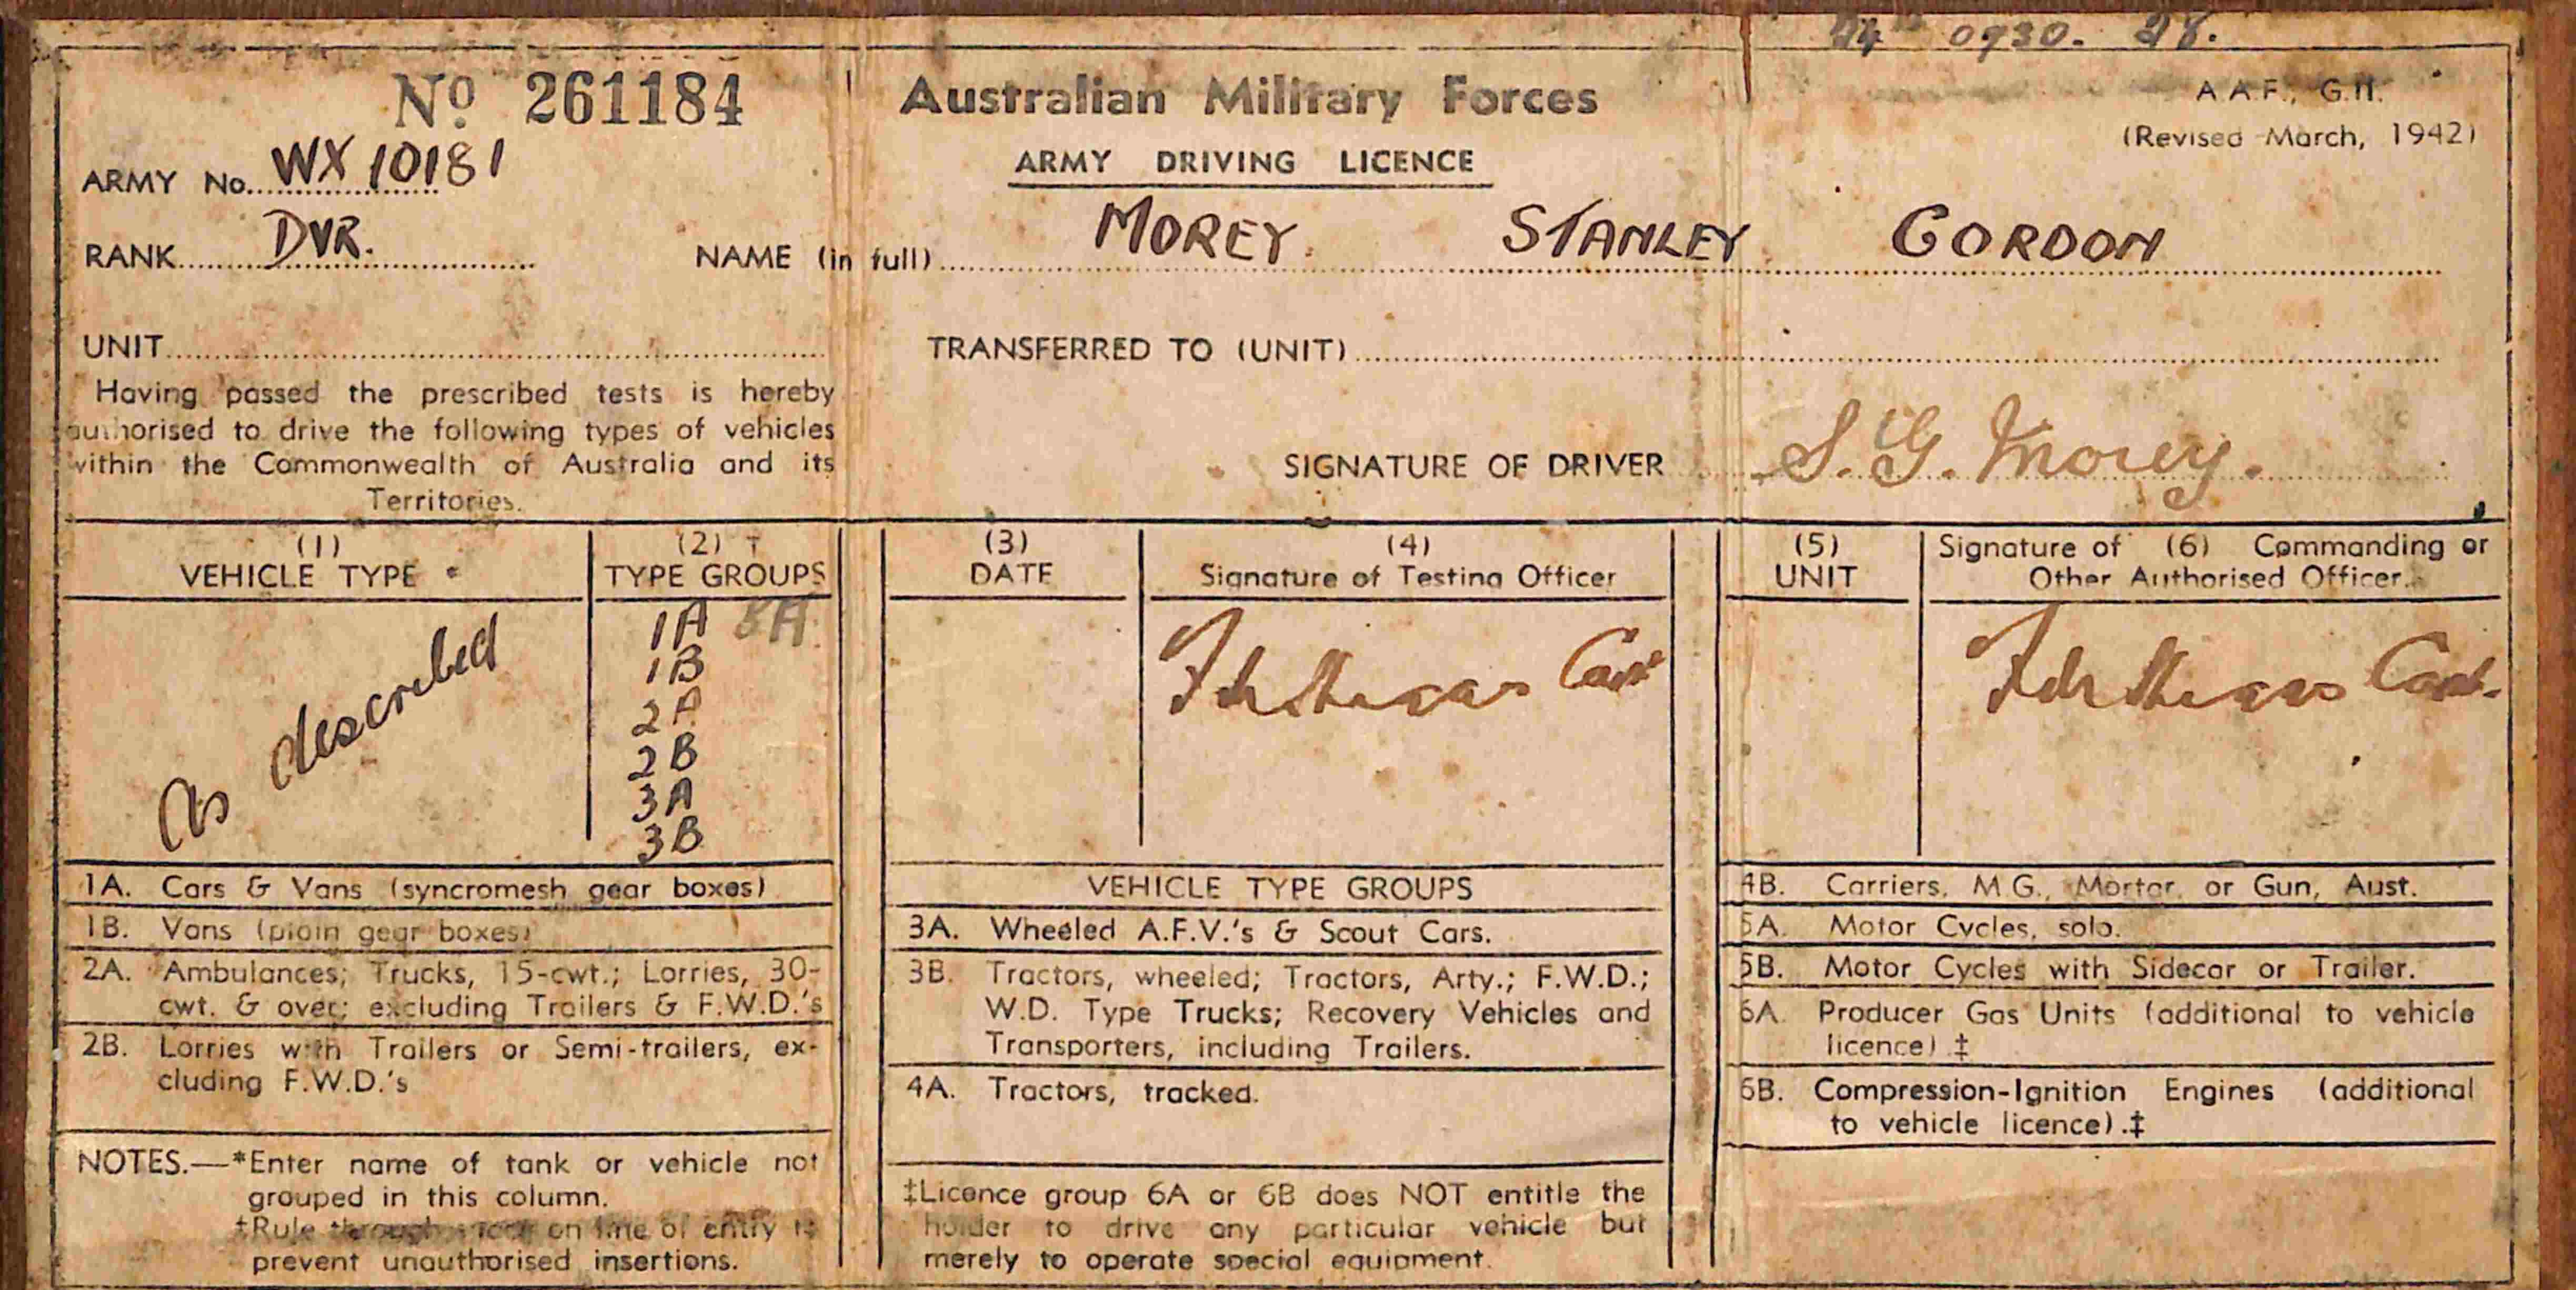 0930. 28.
No 261184
Australian Military Forces
A.A.F., G.11.
(Revised March, 1942)
ARMY DRIVING LICENCE
ARMY No. WX 10181
RANK DVR.
NAME (in full) MOREY STANLEY GORDON
UNIT
TRANSFERRED TO (UNIT)
Having passed the prescribed tests is hereby
authorised to drive the following types of vehicles
within the Commonwealth of Australia and its
Territories.
SIGNATURE OF DRIVER S. G. Morey.
(1)
VEHICLE TYPE *
As described
(2) †
TYPE GROUPS
1A 8A
1B
2A
2B
3A
3B
(3)
DATE
(4)
Signature of Testing Officer
Capt
(5)
UNIT
Signature of (6) Commanding or
Other Authorised Officer.
Capt.
1A. Cars & Vans (syncromesh gear boxes)
1B. Vans (plain gear boxes)
2A. Ambulances; Trucks, 15-cwt.; Lorries, 30-
cwt. & over; excluding Trailers & F.W.D.'s
2B. Lorries with Trailers or Semi-trailers, ex-
cluding F.W.D.'s
NOTES.—*Enter name of tank or vehicle not
grouped in this column.
‡Rule through space on line of entry to
prevent unauthorised insertions.
VEHICLE TYPE GROUPS
3A. Wheeled A.F.V.'s & Scout Cars.
3B. Tractors, wheeled; Tractors, Arty.; F.W.D.;
W.D. Type Trucks; Recovery Vehicles and
Transporters, including Trailers.
4A. Tractors, tracked.
‡Licence group 6A or 6B does NOT entitle the
holder to drive any particular vehicle but
merely to operate special equipment.
4B. Carriers, M.G., Mortar, or Gun, Aust.
5A. Motor Cycles, solo.
5B. Motor Cycles with Sidecar or Trailer.
6A. Producer Gas Units (additional to vehicle
licence).‡
6B. Compression-Ignition Engines (additional
to vehicle licence).‡